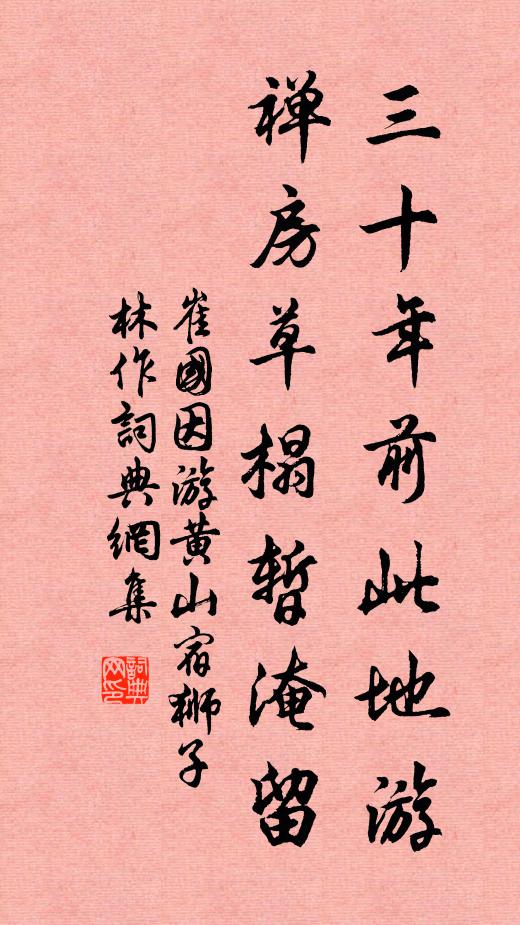 三十年前此地游
禅房草榻暂淹留
崔國因游黄山宿獅子
林作詞典網集
詞典
网印